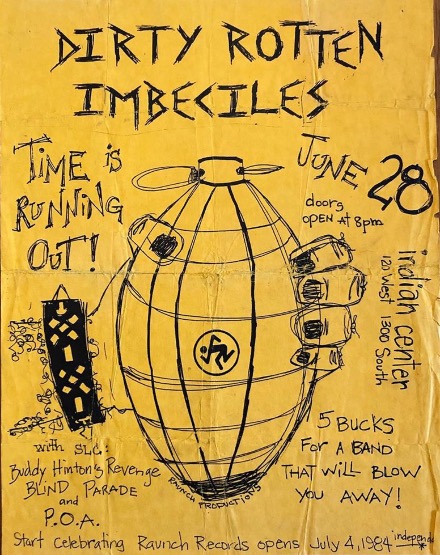 DIRTY ROTTEN
IMBECILES
TIME is
RUNNING
OUT!
JUNE 28
doors
OPEN AT 8pm
indian center
120 West 1300 South
with SLC:
Buddy Hinton's Revenge
BLIND PARADE
and
P.O.A.
5 BUCKS
FOR A BAND
THAT WILL BLOW
YOU AWAY!
RAUNCH PRODUCTIONS
Start celebrating Raunch Records opens July 4, 1984